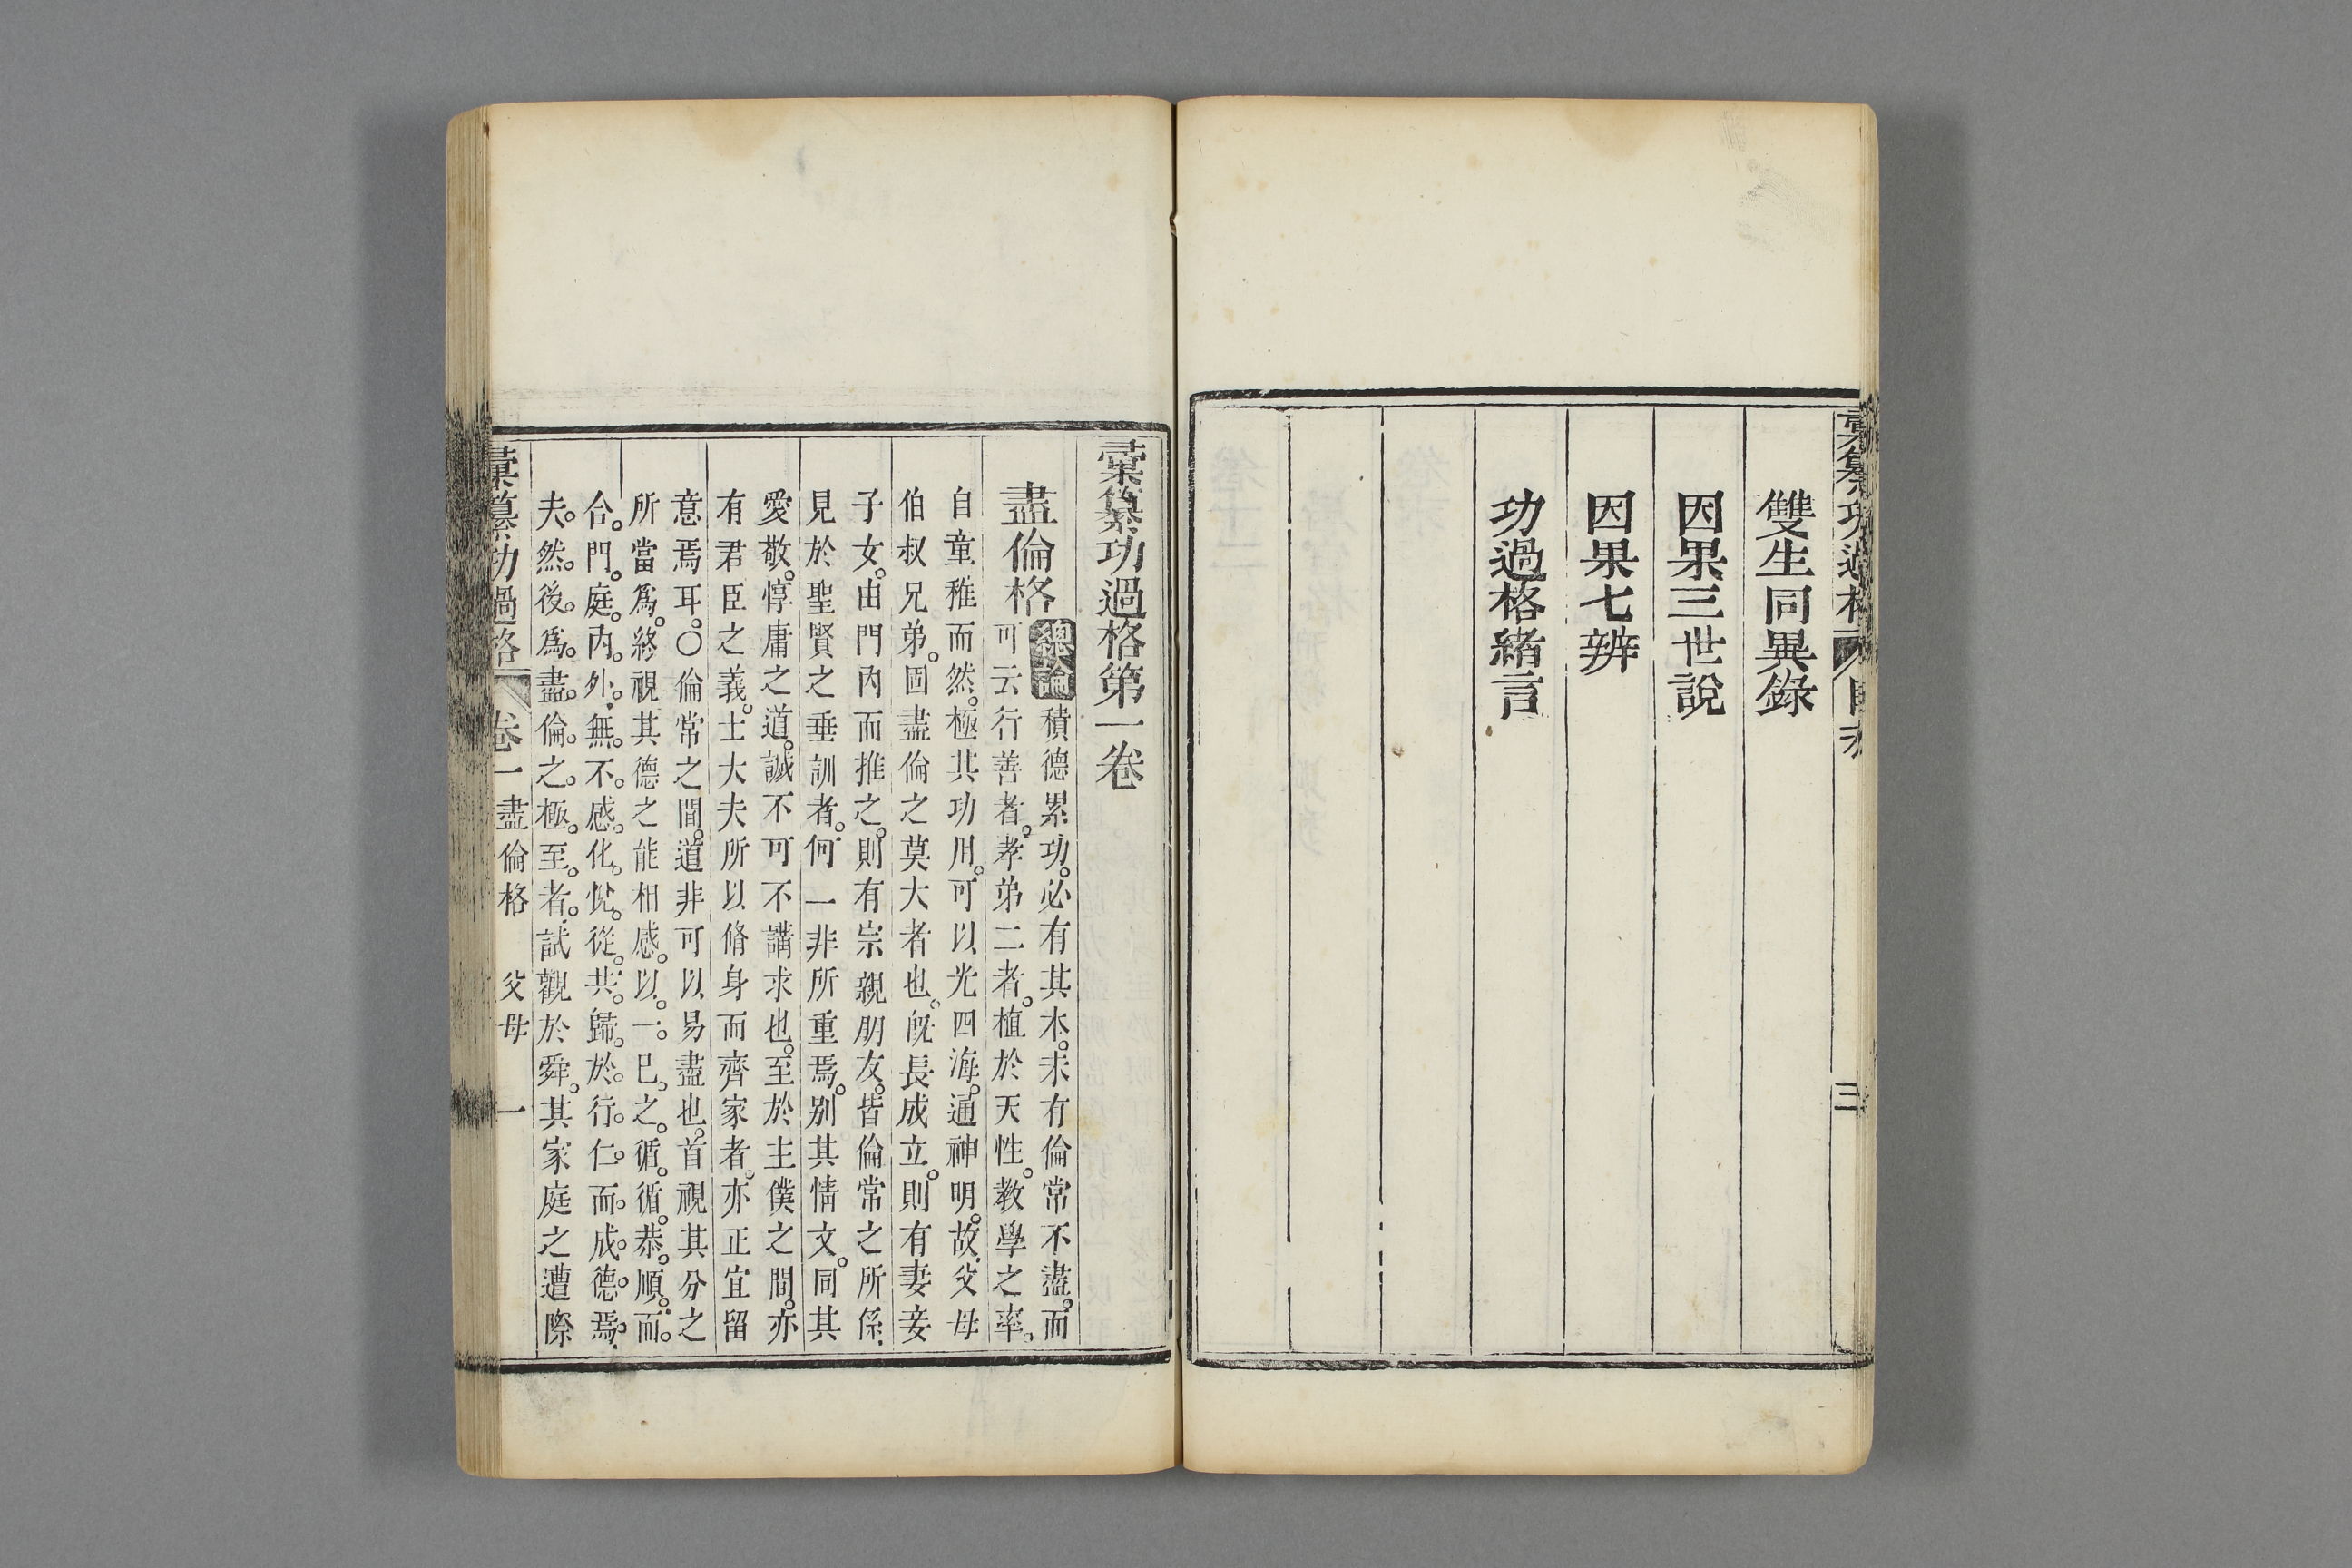 彙纂功過格
目次
三
雙生同異錄
因果三世說
因果七辨
功過格緒言
彙纂功過格第一卷
盡倫格
總論
積德累功。必有其本。未有倫常不盡。而
可云行善者。孝弟二者。植於天性。教學之率。
自童稚而然。極其功用。可以光四海。通神明。故父母
伯叔兄弟。固盡倫之莫大者也。旣長成立。則有妻妾
子女。由門內而推之。則有宗親朋友。皆倫常之所係。
見於聖賢之垂訓者。何一非所重焉。別其情文。同其
愛敬。惇庸之道。誠不可不講求也。至於主僕之間。亦
有君臣之義。士大夫所以脩身而齊家者。亦正宜留
意焉耳。〇倫常之間。道非可以易盡也。首視其分之
所當爲。終視其德之能相感。以。一。已。之。循。循。恭。順。而。
合。門。庭。內。外。無。不。感。化。悅。從。共。歸。於。行。仁。而。成。德。焉。
夫。然。後。爲。盡。倫。之。極。至。者。試觀於舜。其家庭之遭際
彙纂功過格
卷一盡倫格 父母 一